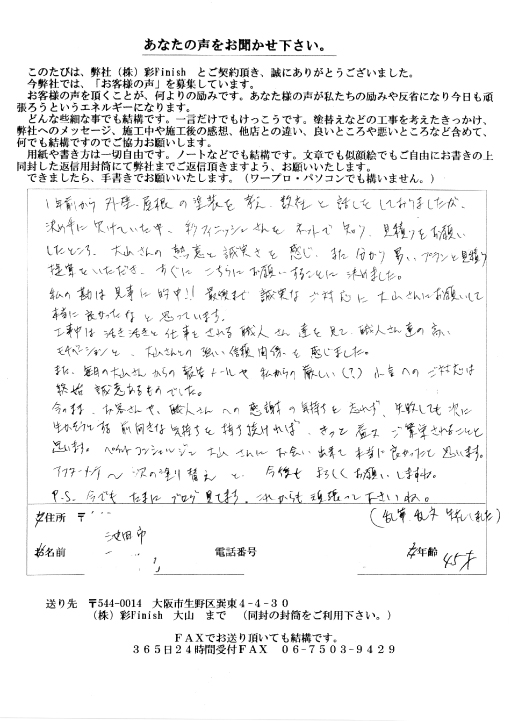 あなたの声をお聞かせ下さい。
このたびは、弊社（株）彩Finish とご契約頂き、誠にありがとうございました。
今弊社では、「お客様の声」を募集しています。
お客様の声を頂くことが、何よりの励みです。あなた様の声が私たちの励みや反省になり今日も頑
張ろうというエネルギーになります。
どんな些細な事でも結構です。一言だけでもけっこうです。塗替えなどの工事を考えたきっかけ、
弊社へのメッセージ、施工中や施工後の感想、他店との違い、良いところや悪いところなど含めて、
何でも結構ですのでご協力お願いします。
用紙や書き方は一切自由です。ノートなどでも結構です。文章でも似顔絵でもご自由にお書きの上
同封した返信用封筒にて弊社までご返信頂きますよう、お願いいたします。
できましたら、手書きでお願いいたします。（ワープロ・パソコンでも構いません。）
1年前から外壁、屋根の塗装を考え、数社と話をしておりましたが、
決め手に欠けていた中、彩フィニッシュさんをネットで知り、見積りをお願い
したところ、大山さんの熱意と誠実さを感じ、また分かり易いプランと見積り
提案をいただき、すぐにこちらにお願いすることに決めました。
私の勘は見事に的中!! 最後まで誠実なご対応に大山さんにお願いして
本当に良かったなと思っています。
工事中は活き活きと仕事をされる職人さん達を見て、職人さん達の高い
モチベーションと、大山さんとの強い信頼関係を感じました。
また、毎日の大山さんからの報告メールや私からの厳しい(?)小言へのご対応は
終始誠意あるものでした。
今のまま、お客さんや、職人さんへの感謝の気持ちを忘れず、失敗しても次に
生かそうとする前向きな気持ちを持ち続ければ、きっと益々ご繁栄されることと
思います。ペイントコンシェルジュ大山さんにお会い出来て本当に良かったと思います。
アフターメンテ〜次の塗り替えと、今後もよろしくお願いしますね。
P.S. 今でもたまにブログ見てます。これからも頑張って下さいね。
(乱筆、乱文 失礼しました)
お住所 〒
池田市
お名前 電話番号 お年齢 45才
送り先 〒544-0014 大阪市生野区巽東4-4-30
（株）彩Finish 大山 まで （同封の封筒をご利用下さい。）
FAXでお送り頂いても結構です。
365日24時間受付FAX 06-7503-9429